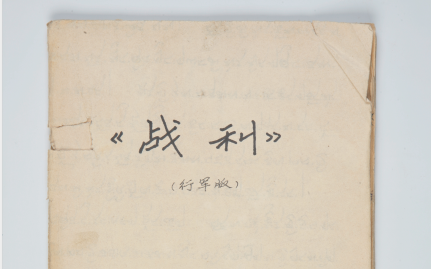 《战利》
(行军版)